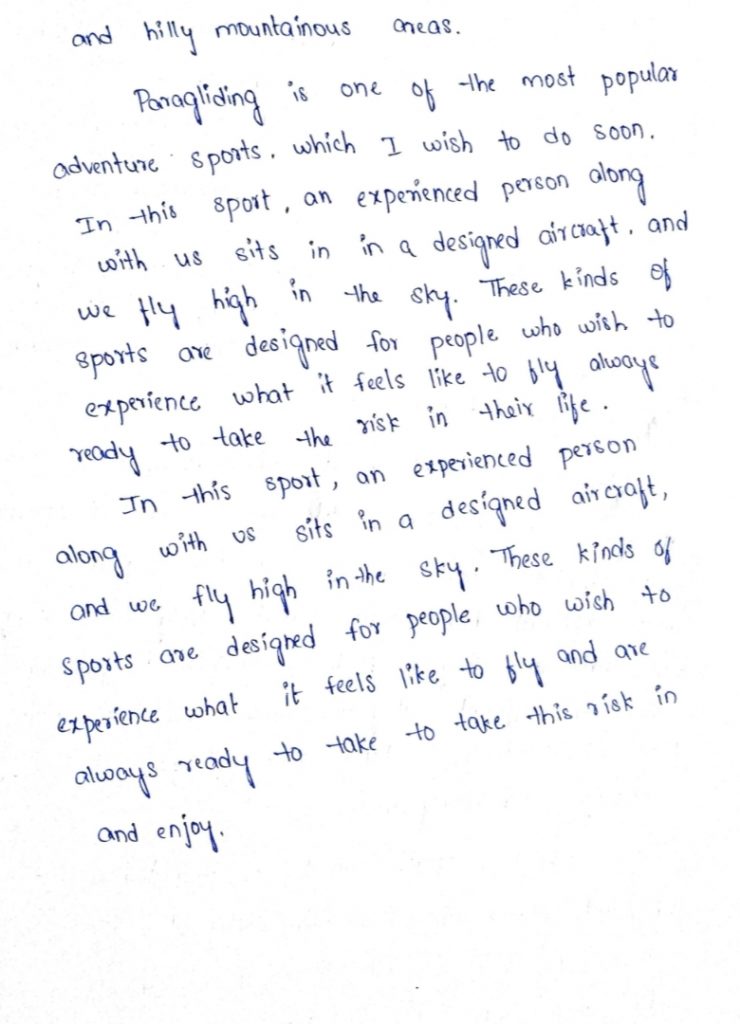 and hilly mountainous areas.
Paragliding is one of the most popular
adventure sports. which I wish to do soon.
In this sport, an experienced person along
with us sits in in a designed aircraft. and
we fly high in the sky. These kinds of
sports are designed for people who wish to
experience what it feels like to fly always
ready to take the risk in their life.
In this sport, an experienced person
along with us sits in a designed aircraft,
and we fly high in the sky. These kinds of
sports are designed for people, who wish to
experience what it feels like to fly and are
always ready to take to take this risk in
and enjoy.